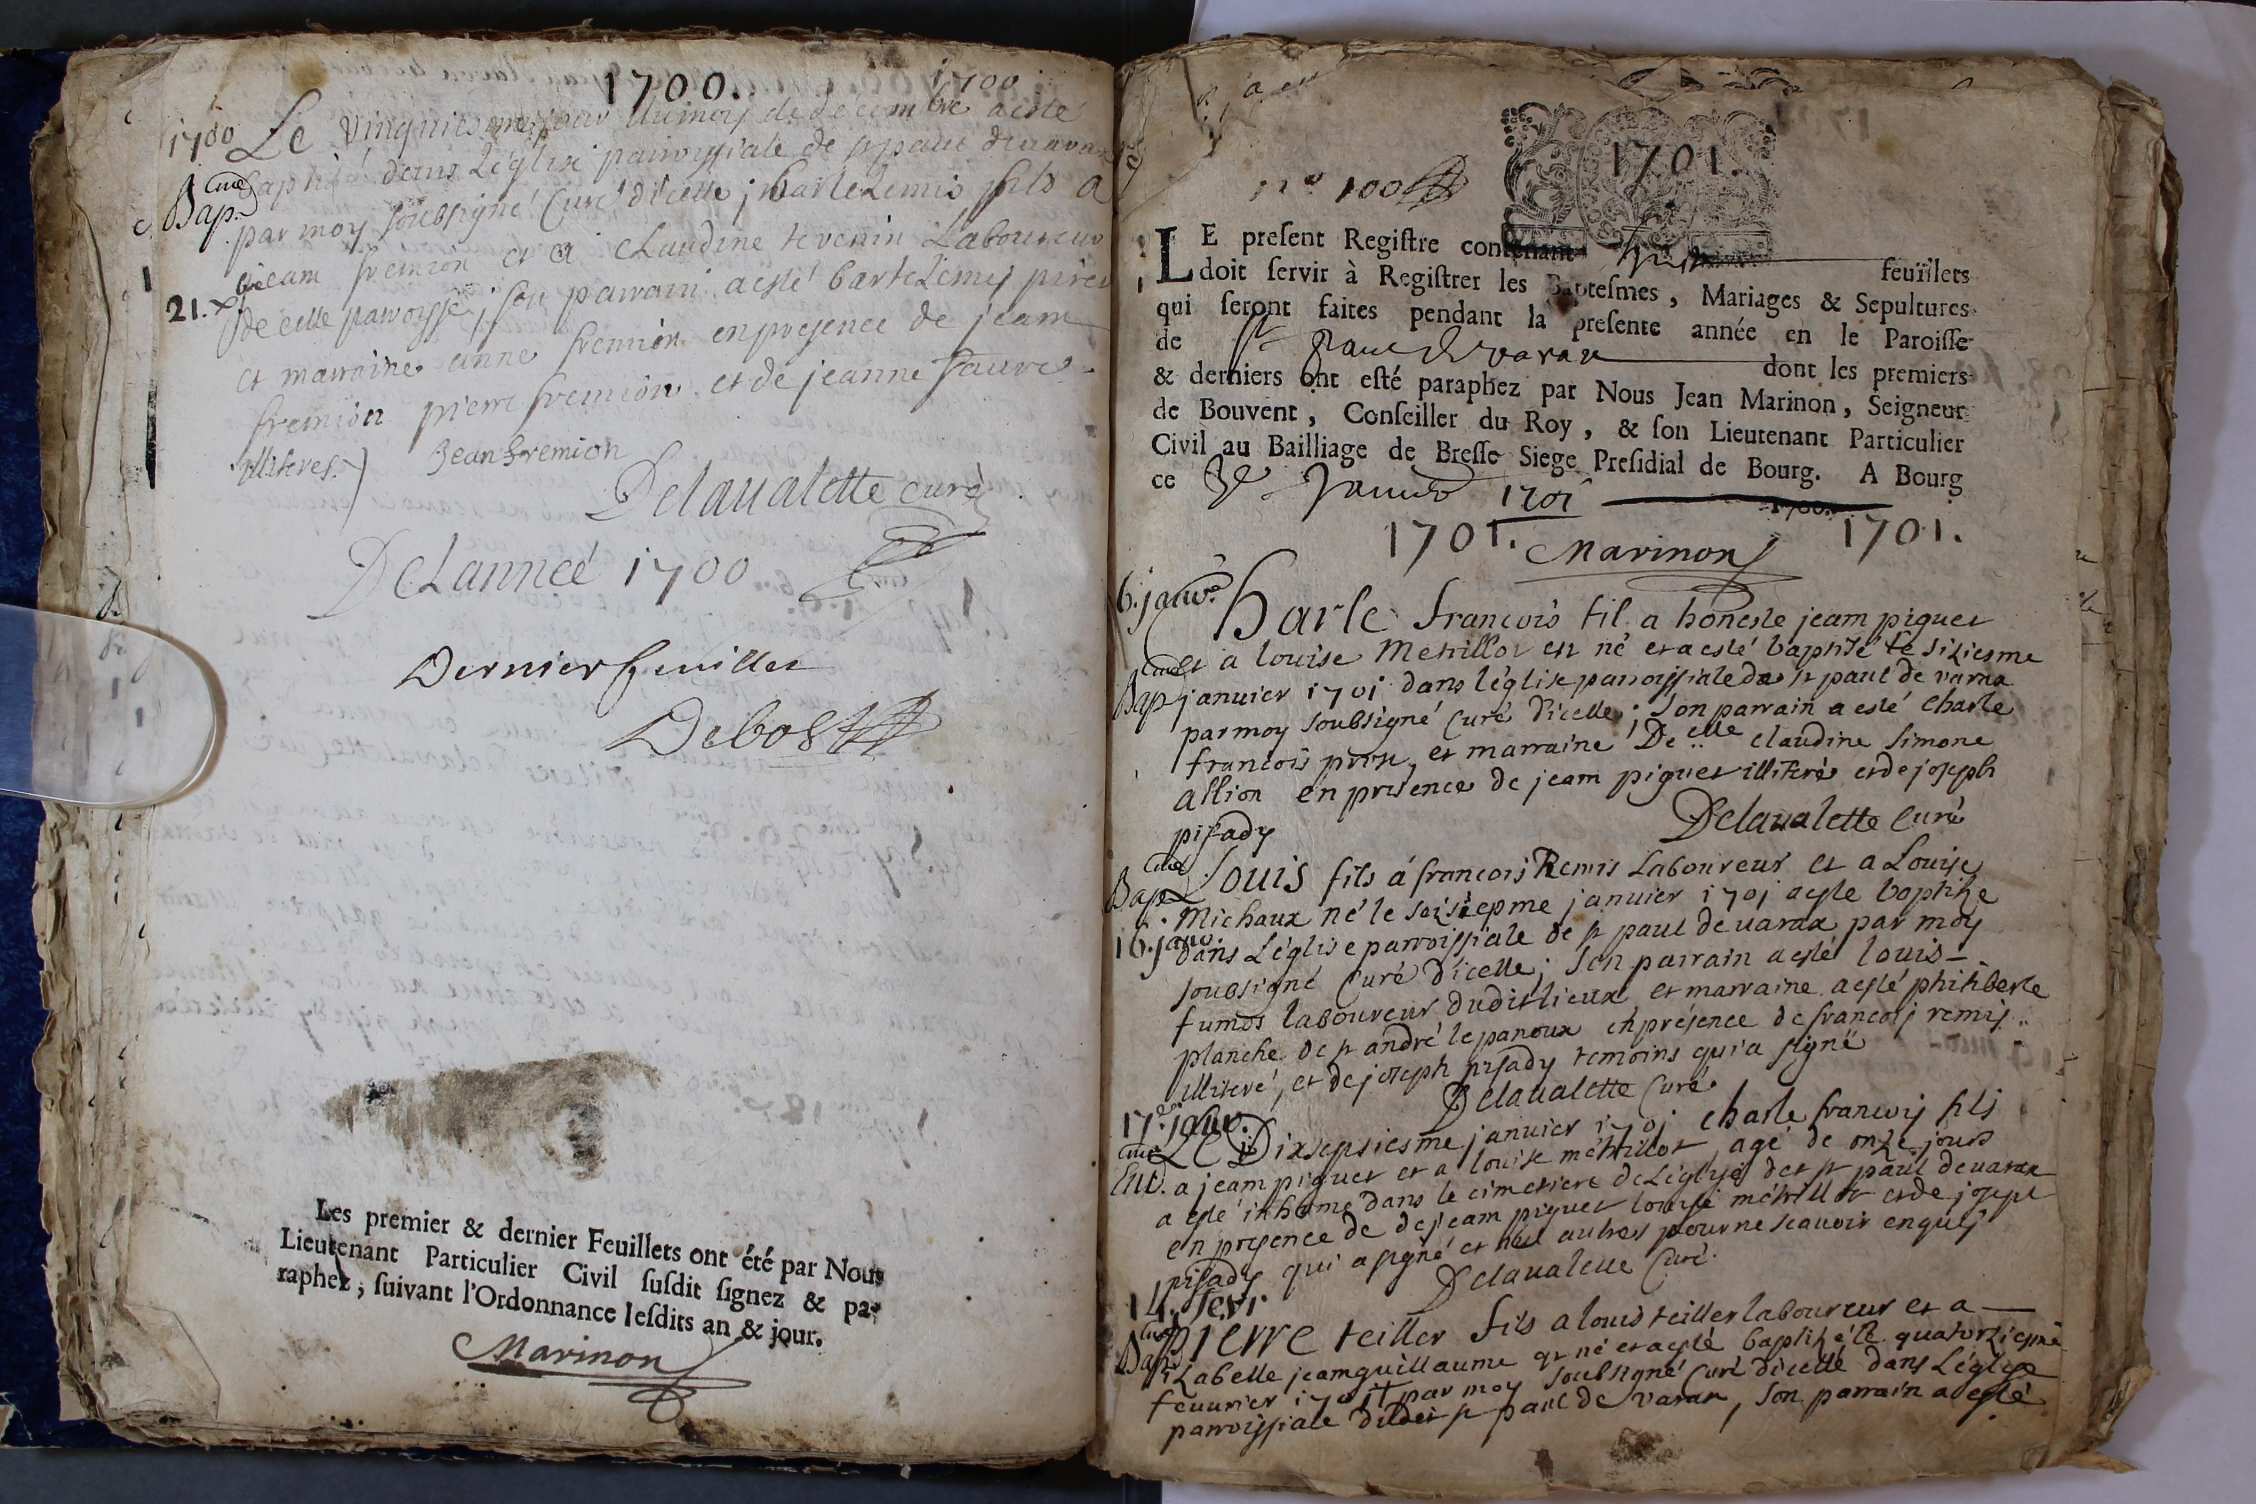 1700. 1700
1700 Le Vingtuniesme jour du mois de decembre a esté
Cure Bap. baptisé dans L'église parroissiale de st paul de varax
par moy soubsigné Curé d'icelle, bartelemis fils a
jeam fremion et a Claudine tevenin Laboureur
21. xbre de celle parroisse; son parrain a esté bartelemy
et marraine anne fremion en presence de jeam
fremion pierre fremion et de jeanne
illiteres. Jean fremion
Delaualette curé
De Lanneé 1700
Dernier feuillet
Debost
Les premier & dernier Feuillets ont été par Nous
Lieutenant Particulier Civil susdit signez & pa-
raphez, suivant l'Ordonnance lesdits an & jour.
Marinon
1701.
100
LE present Registre contenant huit feuïllets
doit servir à Registrer les Baptesmes, Mariages & Sepultures
qui seront faites pendant la presente année en le Paroisse
de st Paul de varax dont les premiers
& derniers ont esté paraphez par Nous Jean Marinon, Seigneur
de Bouvent, Conseiller du Roy, & son Lieutenant Particulier
Civil au Bailliage de Bresse Siege Presidial de Bourg. A Bourg
ce 3e Janvier 1701 1700.
1701. Marinon 1701.
6. janv. Charle francois fil a honeste jeam piguet
et a louise Metrillot est né et a esté baptisé le sixiesme
Cure Bap janvier 1701 dans l'église parroissiale de st paul de varax
par moy soubsigné Curé d'icelle; son parrain a esté Charle
francois et marraine Delle claudine simone
allion en presence de jeam piguet illiteré et de joseph
pisady Delaualette Curé
Cure Bap Louis fils á francois Remis Laboureur et a Louise
Michaux né le seisiepme janvier 1701 a este baptize
16. janv. dans L'église parroissiale de st paul de varax par moy
soubsigné Curé d'icelle; son parrain a esté louis
fumos laboureur dudit lieux et marraine a esté philiberte
planche de st andré le panoux en présence de francois remis
illiteré, et de joseph pisady temoins qui a signé
Delaualette Curé
17. janv. Le Dixsepsiesme janvier 1701 charle francois fils
Cure Ent. a jeam piguet et a louise metrillot agé de onze jours
a esté inhumé dans le cimetiere de L'église de st paul de varax
en presence de de jeam piguet louise metrillot et de joseph
pisady qui a signé et nul autres pour ne scauoir enquis
Delaualette Curé
14. fevr. pierre teiller fils a louis teiller laboureur et a
Cure Bap izabelle jeamguillaume est né et a esté baptizé le quatorziesme
feuurier 1701 par moy soubsigné Curé d'icelle dans L'église
parroissiale dudit st paul de varax, son parrain a esté